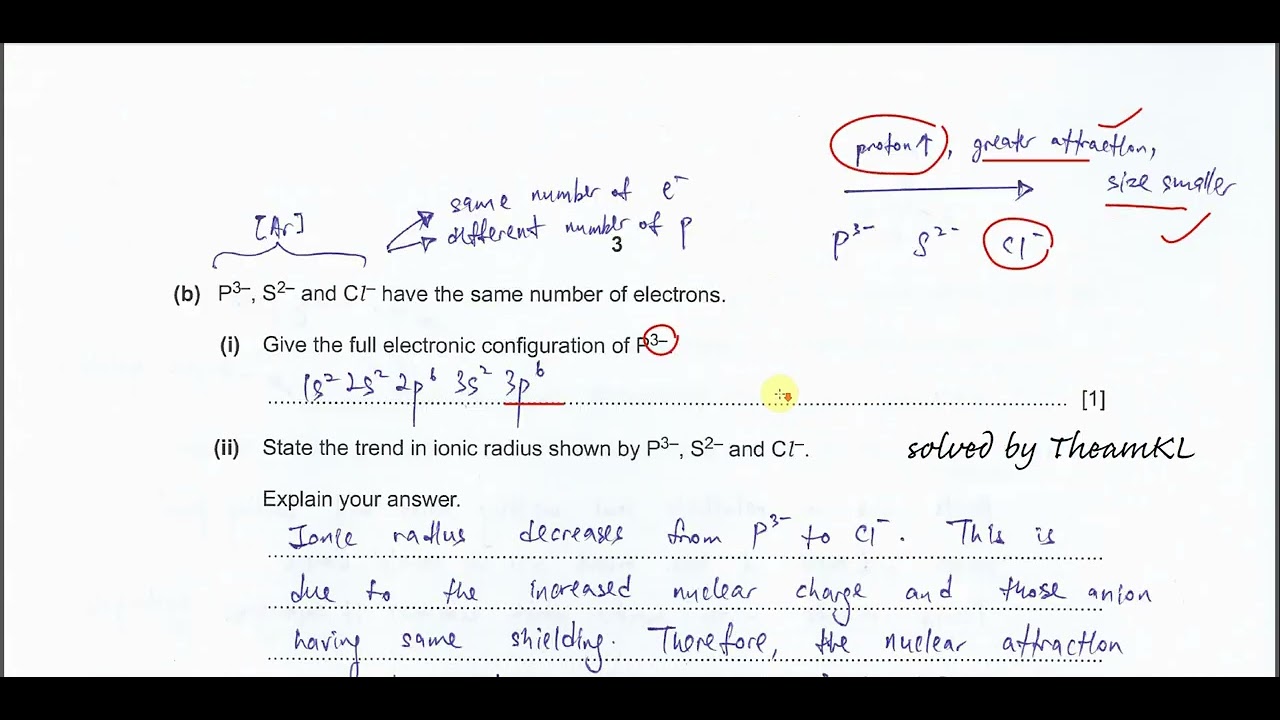 proton↑, greater attraction,
size smaller
same number of e⁻
[Ar]
different number of p
P³⁻ S²⁻ Cl⁻
3
(b) P³⁻, S²⁻ and Cl⁻ have the same number of electrons.
(i) Give the full electronic configuration of P³⁻
1s² 2s² 2p⁶ 3s² 3p⁶
[1]
(ii) State the trend in ionic radius shown by P³⁻, S²⁻ and Cl⁻.
solved by TheamKL
Explain your answer.
Ionic radius decreases from P³⁻ to Cl⁻. This is
due to the increased nuclear charge and those anion
having same shielding. Therefore, the nuclear attraction